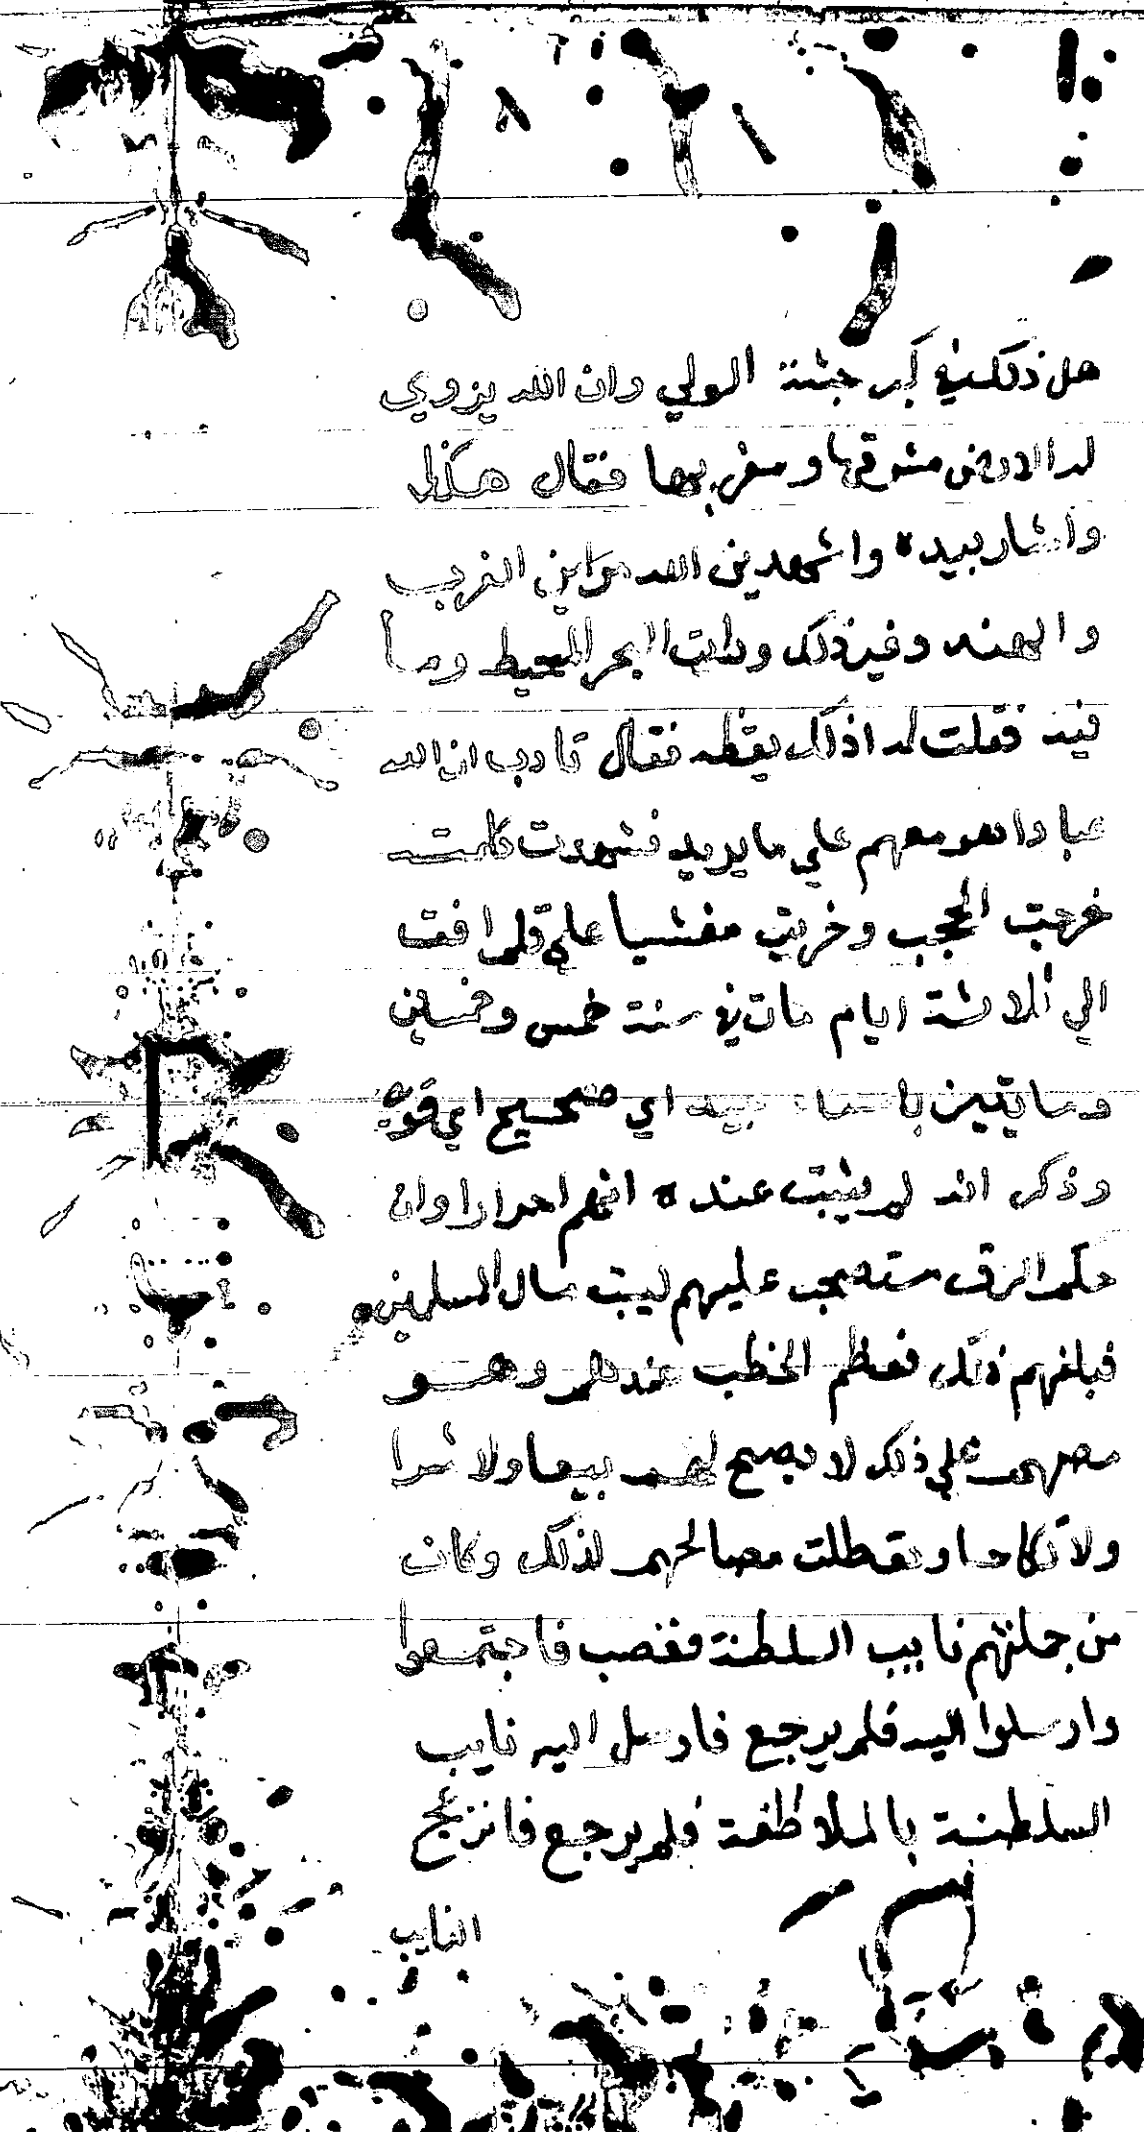 هل ذلك في كبر جثة الولي وان الله يزوي
له الارض مشرقها ومغربها فقال هكذا
واشار بيده واشهدني الله من اين الغرب
والهند وغير ذلك ورايت البحر المحيط وما
فيه فقلت له اذلك يقظه فقال تادب ان لله
عبادا هو معهم علي ما يريد فشهدت كلمته
خرجت الحجب وخريت مغشيا علي فلم افق
الي ثلاثة ايام مات في سنة خمس وخمسين
ومايتين اي صحيح اي قوة
وذكر انه لم يثبت عنده انهم احرارا وان
حكم الرق مستصحب عليهم لبيت مال المسلمين
فبلغهم ذلك فعظم الخطب عندهم وهو
مصمم علي ذلك لا يصح لهم بيعا ولا شرا
ولا نكاحا وتعطلت مصالحهم لذلك وكان
من جملتهم نايب السلطنة فغضب فاجتمعوا
وارسلوا اليه فلم يرجع فارسل اليه نايب
السلطنة بالملاطفة فلم يرجع فانزعج
النايب